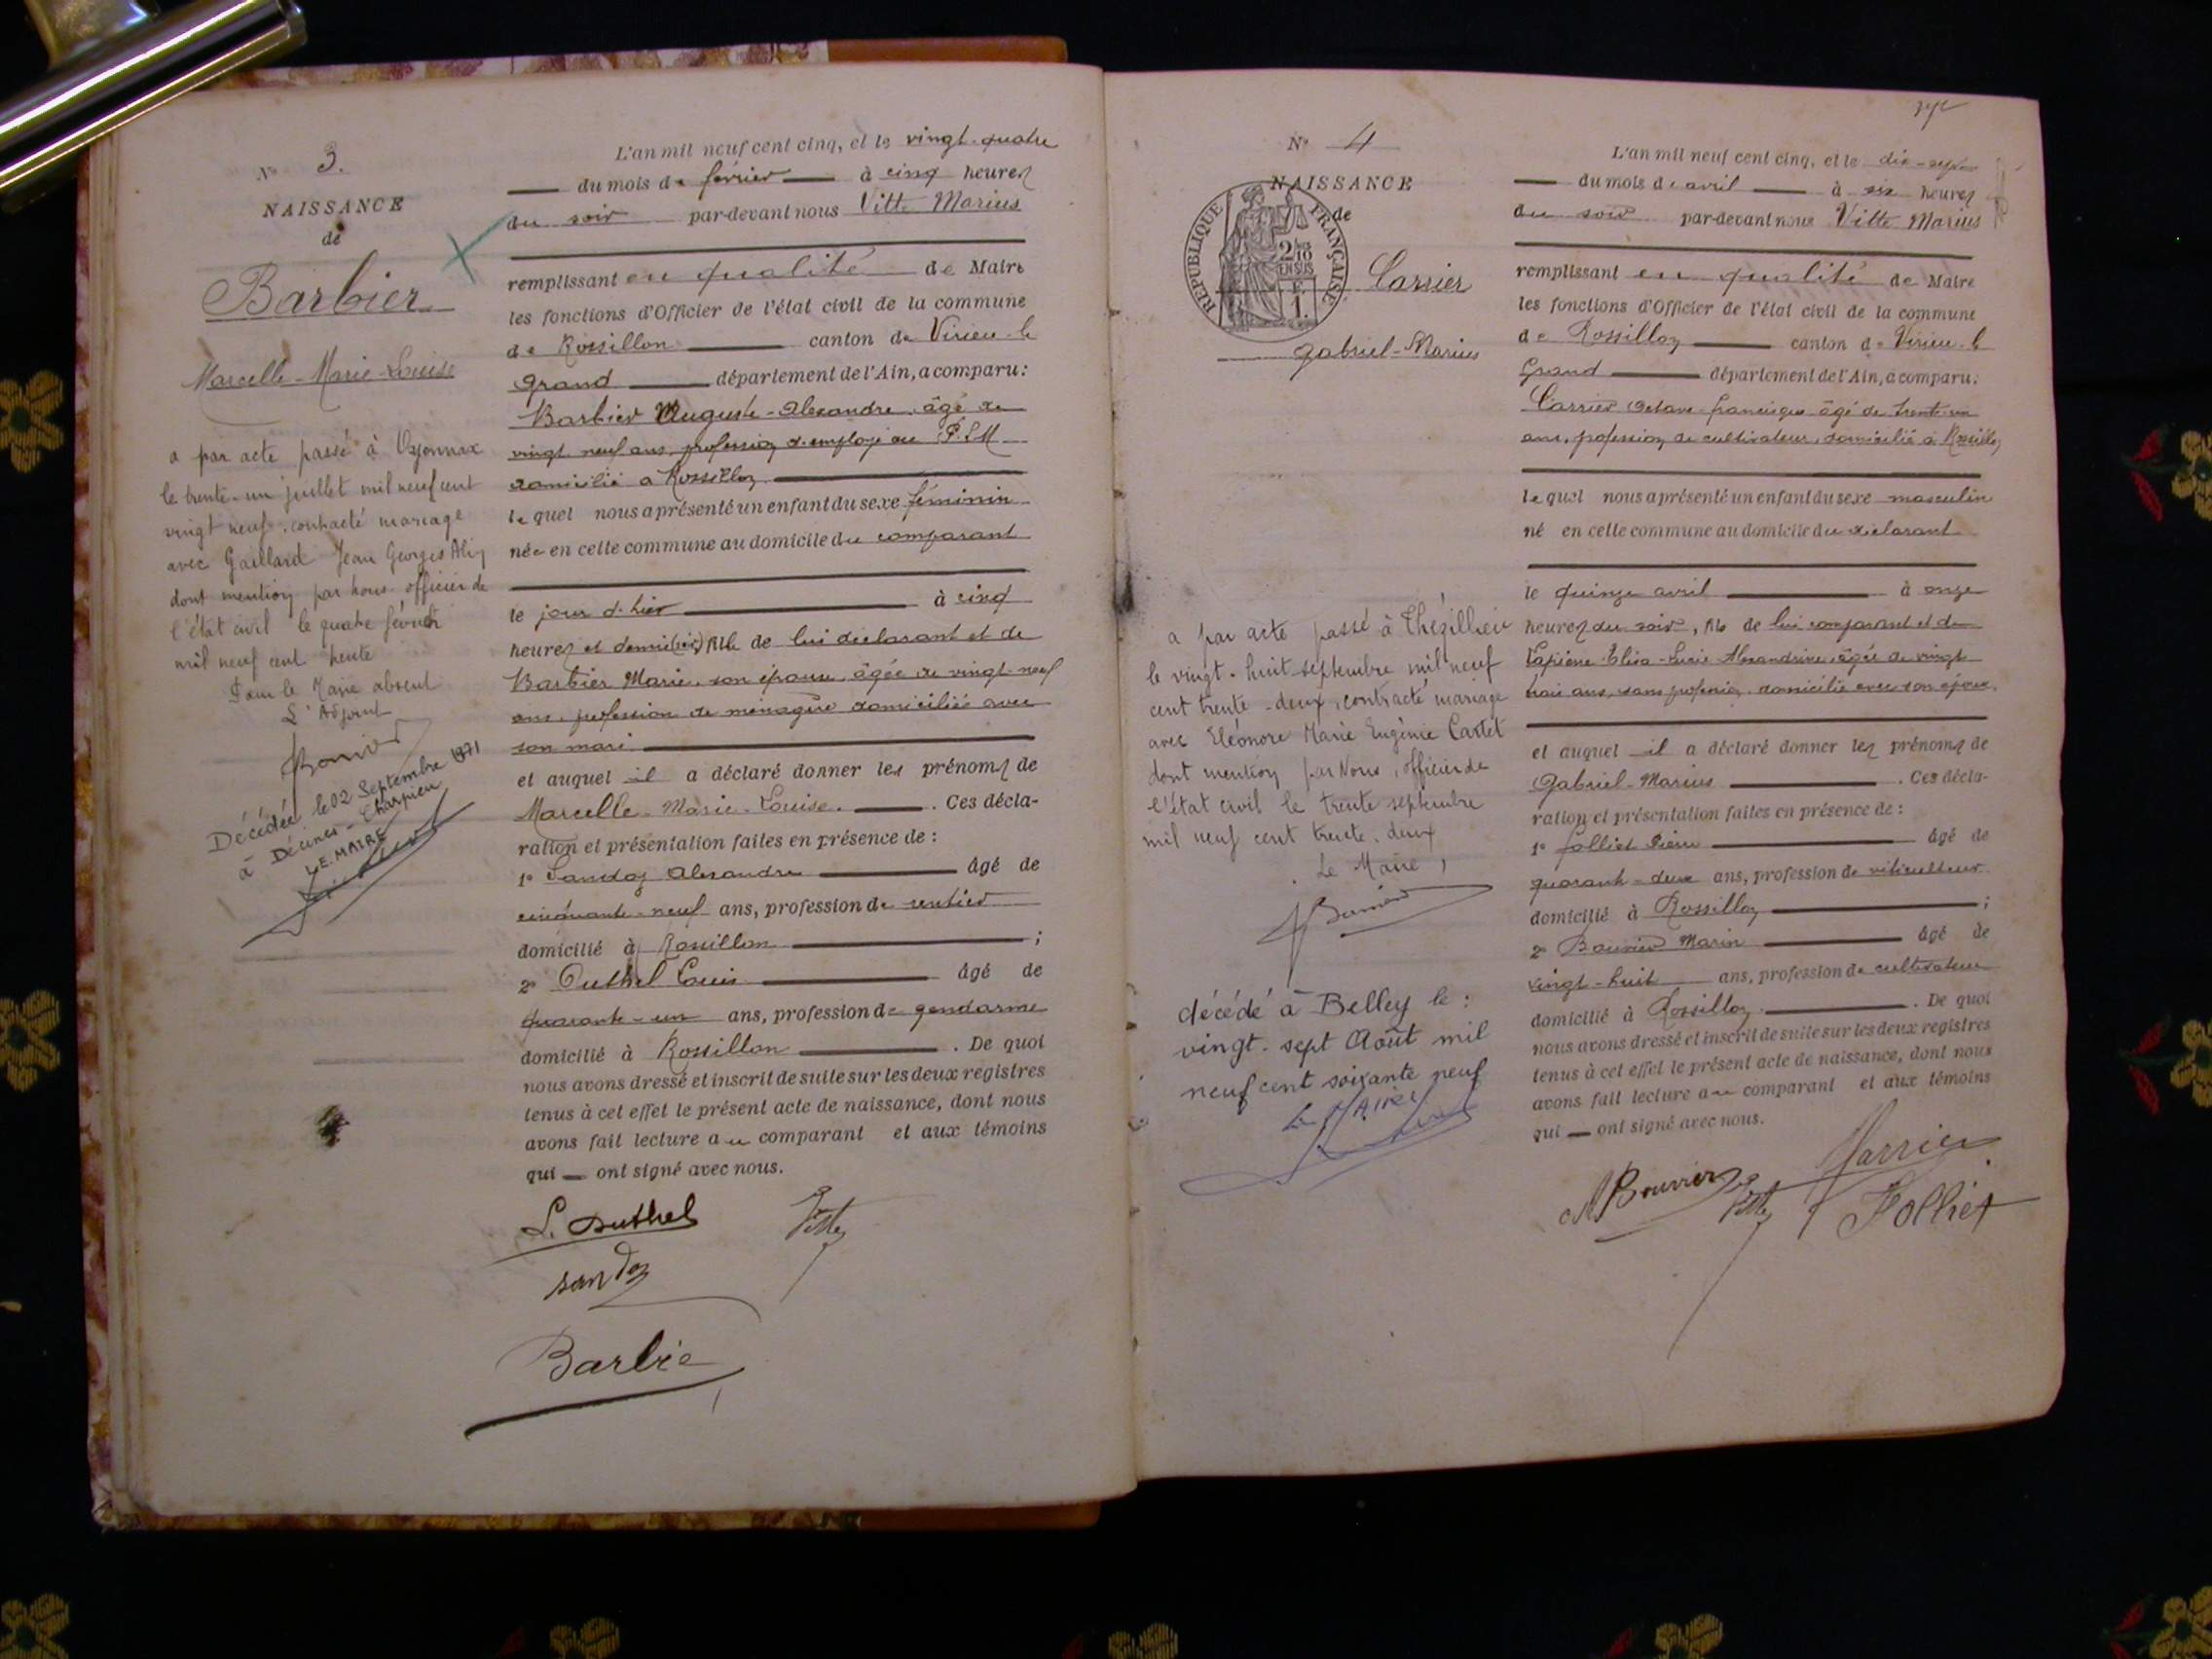 N° 3.
NAISSANCE
de
Barbier
Marcelle-Marie-Louise
a par acte passé à Oyonnax
le trente-un juillet mil neuf cent
vingt neuf, contracté mariage
avec Gaillard Jean Georges
dont mention par nous officier de
l'état civil le quatre février
mil neuf cent trente
Pour le Maire absent
L'Adjoint
Décédée le 02 Septembre 1971
à Décines-Charpieu
LE MAIRE
L'an mil neuf cent cinq, et le vingt-quatre
du mois de février à cinq heures
du soir par-devant nous Vitte Marius
remplissant en qualité de Maire
les fonctions d'Officier de l'état civil de la commune
de Rossillon canton de Virieu-le
Grand département de l'Ain, a comparu:
Barbier Auguste-Alexandre, âgé de
vingt neuf ans, profession d'employé au P.L.M
domicilié à Rossillon
lequel nous a présenté un enfant du sexe féminin
née en cette commune au domicile du comparant
le jour d'hier à cinq
heures et demi(e) de lui déclarant et de
Barbier Marie, son épouse, âgée de vingt neuf
ans, profession de ménagère domiciliée avec
son mari
et auquel il a déclaré donner les prénoms de
Marcelle-Marie-Louise. . Ces décla-
ration et présentation faites en présence de :
1° Sandoz Alexandre âgé de
cinquante-neuf ans, profession de rentier
domicilié à Rossillon ;
2° Duthel Louis âgé de
quarante-un ans, profession de gendarme
domicilié à Rossillon . De quoi
nous avons dressé et inscrit de suite sur les deux registres
tenus à cet effet le présent acte de naissance, dont nous
avons fait lecture au comparant et aux témoins
qui ont signé avec nous.
L. Duthel
Vitte
sandoz
Barbie
N° 4
NAISSANCE
de
REPUBLIQUE FRANÇAISE
2/10
EN SUS
F.
1.
Carrier
Gabriel-Marius
a par acte passé à Thézillieu
le vingt-huit septembre mil neuf
cent trente-deux, contracté mariage
avec Eléonore Marie Eugénie Cartet
dont mention par Nous, officier de
l'état civil le trente septembre
mil neuf cent trente-deux
Le Maire,
décédé à Belley le :
vingt-sept Août mil
neuf cent soixante neuf
Le MAIRE
L'an mil neuf cent cinq, et le dix-sept
du mois de avril à six heures
du soir par-devant nous Vitte Marius
remplissant en qualité de Maire
les fonctions d'Officier de l'état civil de la commune
de Rossillon canton de Virieu-le
Grand département de l'Ain, a comparu:
Carrier Octave-françisque âgé de trente-un
ans, profession de cultivateur, domicilié à Rossillon
lequel nous a présenté un enfant du sexe masculin
né en cette commune au domicile du déclarant
le quinze avril à onze
heures du soir, fils de lui comparant et de
Lapierre Elisa-Lucie Alexandrine, âgée de vingt
trois ans, sans profession, domiciliée avec son époux.
et auquel il a déclaré donner les prénoms de
Gabriel-Marius . Ces décla-
ration et présentation faites en présence de :
1° Folliet Pierre âgé de
quarante-deux ans, profession de viticulteur
domicilié à Rossillon ;
2° Bouvier Marin âgé de
vingt-huit ans, profession de cultivateur
domicilié à Rossillon . De quoi
nous avons dressé et inscrit de suite sur les deux registres
tenus à cet effet le présent acte de naissance, dont nous
avons fait lecture au comparant et aux témoins
qui ont signé avec nous.
Carrier
M Bouvier
Vitte
Folliet